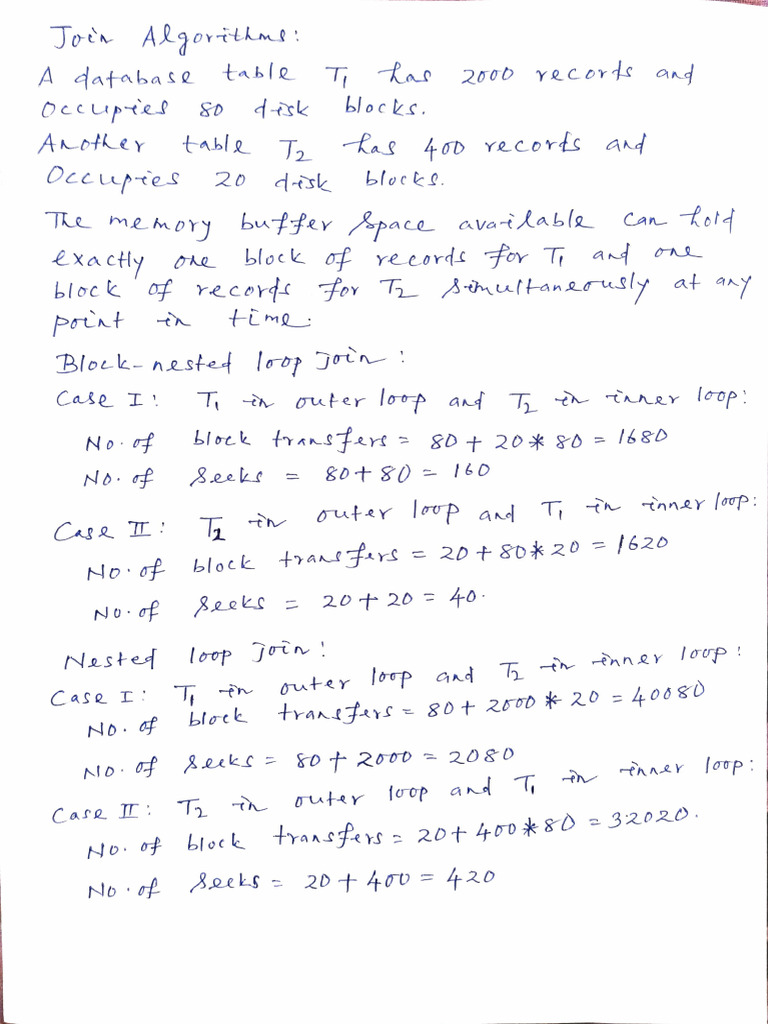 Join Algorithms:
A database table T₁ has 2000 records and
occupies 80 disk blocks.
Another table T₂ has 400 records and
occupies 20 disk blocks.
The memory buffer space available can hold
exactly one block of records for T₁ and one
block of records for T₂ simultaneously at any
point in time.
Block-nested loop join:
Case I: T₁ in outer loop and T₂ in inner loop:
No. of block transfers = 80 + 20 * 80 = 1680
No. of seeks = 80 + 80 = 160
Case II: T₂ in outer loop and T₁ in inner loop:
No. of block transfers = 20 + 80 * 20 = 1620
No. of seeks = 20 + 20 = 40.
Nested loop join:
Case I: T₁ in outer loop and T₂ in inner loop:
No. of block transfers = 80 + 2000 * 20 = 40080
No. of seeks = 80 + 2000 = 2080
Case II: T₂ in outer loop and T₁ in inner loop:
No. of block transfers = 20 + 400 * 80 = 32020.
No. of seeks = 20 + 400 = 420